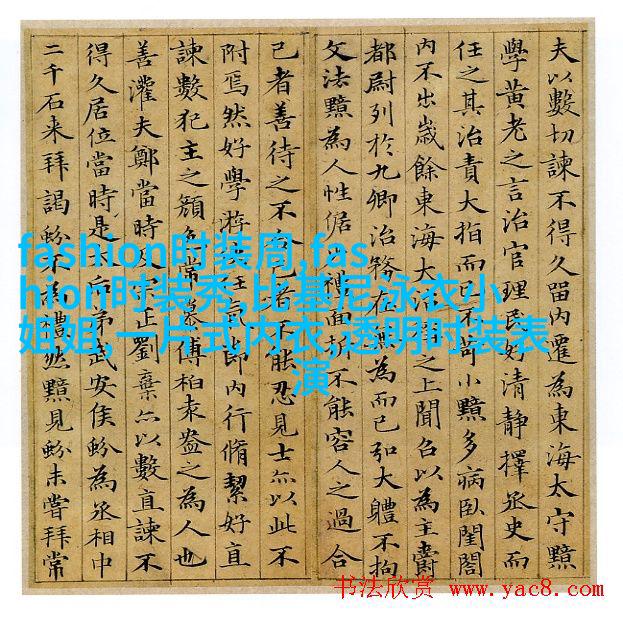 夫以數切諫不得久留內遷為東海太守黯
學黃老之言治官理民好清靜擇丞史而
任之其治責大指而已不苛小黯多病臥閨閤
內不出歲餘東海大治稱之上聞召以為主爵
都尉列於九卿治務在無為而已弘大體不拘
文法黯為人性倨禮面折不能容人之過合
己者善待之不合己者不能忍見士亦以此不
附焉然好學游俠任氣節內行脩絜好直
諫數犯主之顏色常慕傅柏袁盎之為人也
善灌夫鄭當時及宗正劉棄亦以數直諫不
得久居位當時是太后弟武安侯蚡為丞相中
二千石来拜謁蚡不為禮然黯見蚡未嘗拜常
fashion时装周,fas
hion时装秀,比基尼泳衣小
姐姐,一片式内衣,透明时装表
演
书法欣赏 www.yac8.com